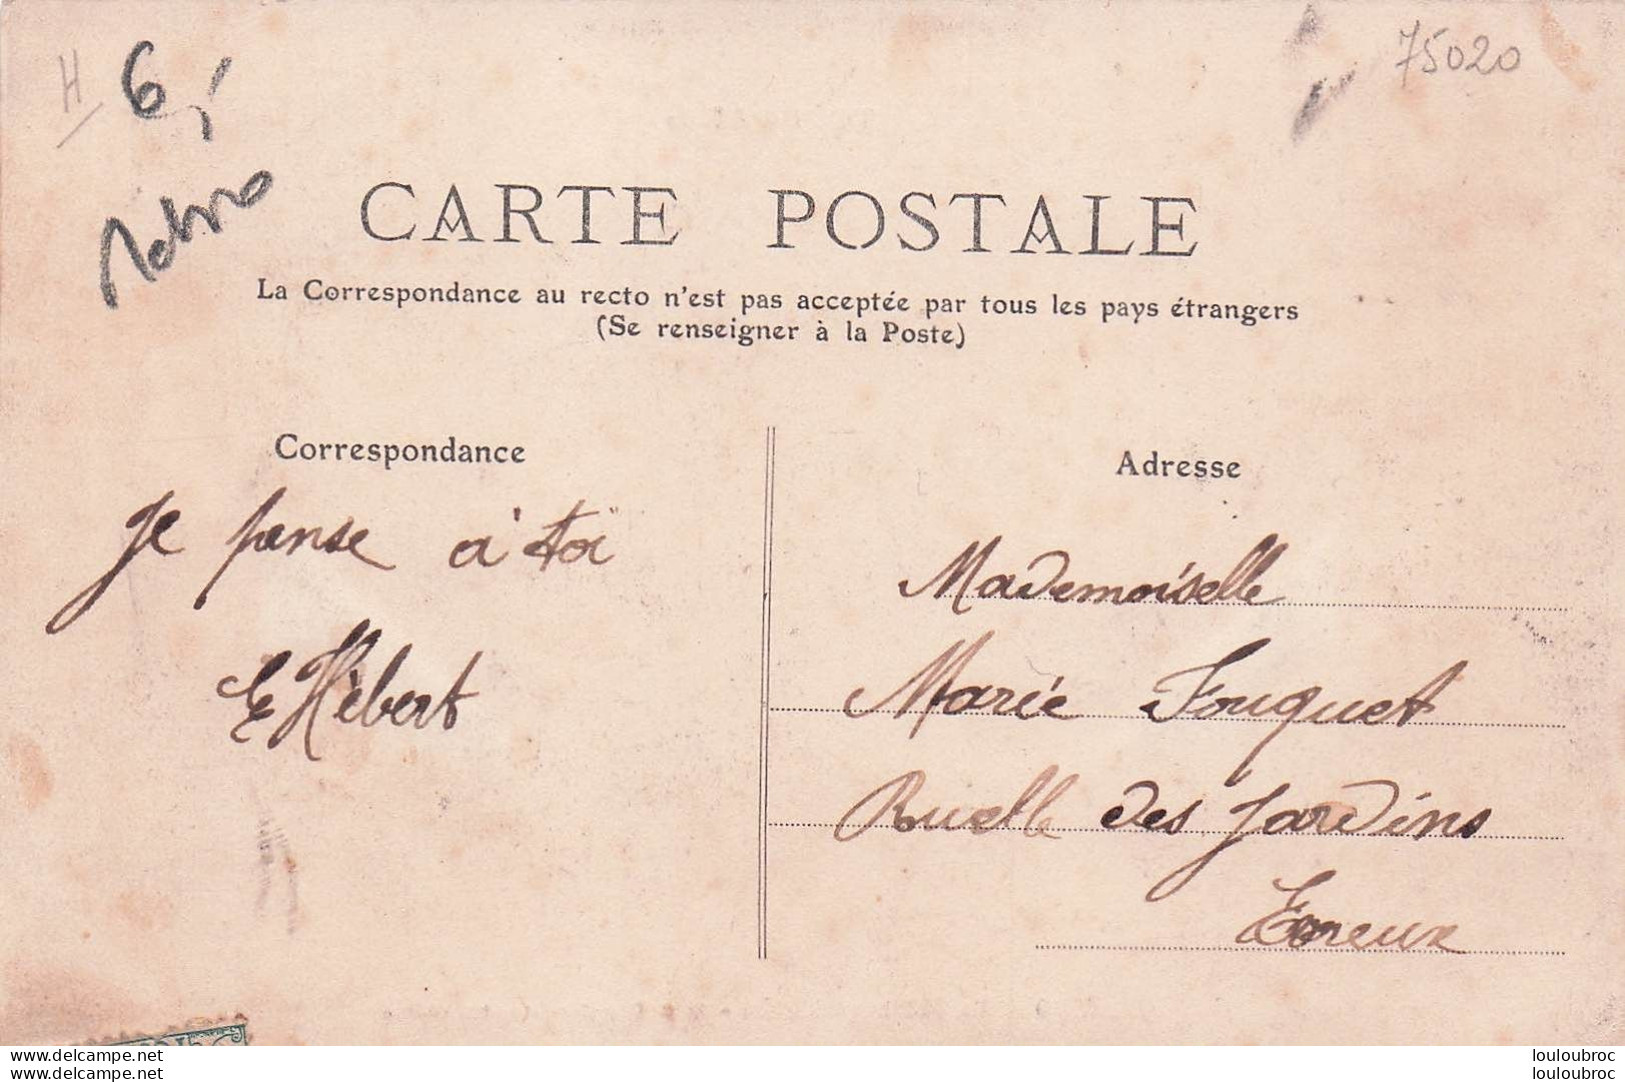 H
6,
75020
CARTE POSTALE
La Correspondance au recto n'est pas acceptée par tous les pays étrangers
(Se renseigner à la Poste)
Correspondance
Je panse à toi
E Hèbert
Adresse
Mademoiselle
Marie Fouquet
Ruelle des Jardins
Evreux
www.delcampe.net
www.delcampe.net
louloubroc
louloubroc